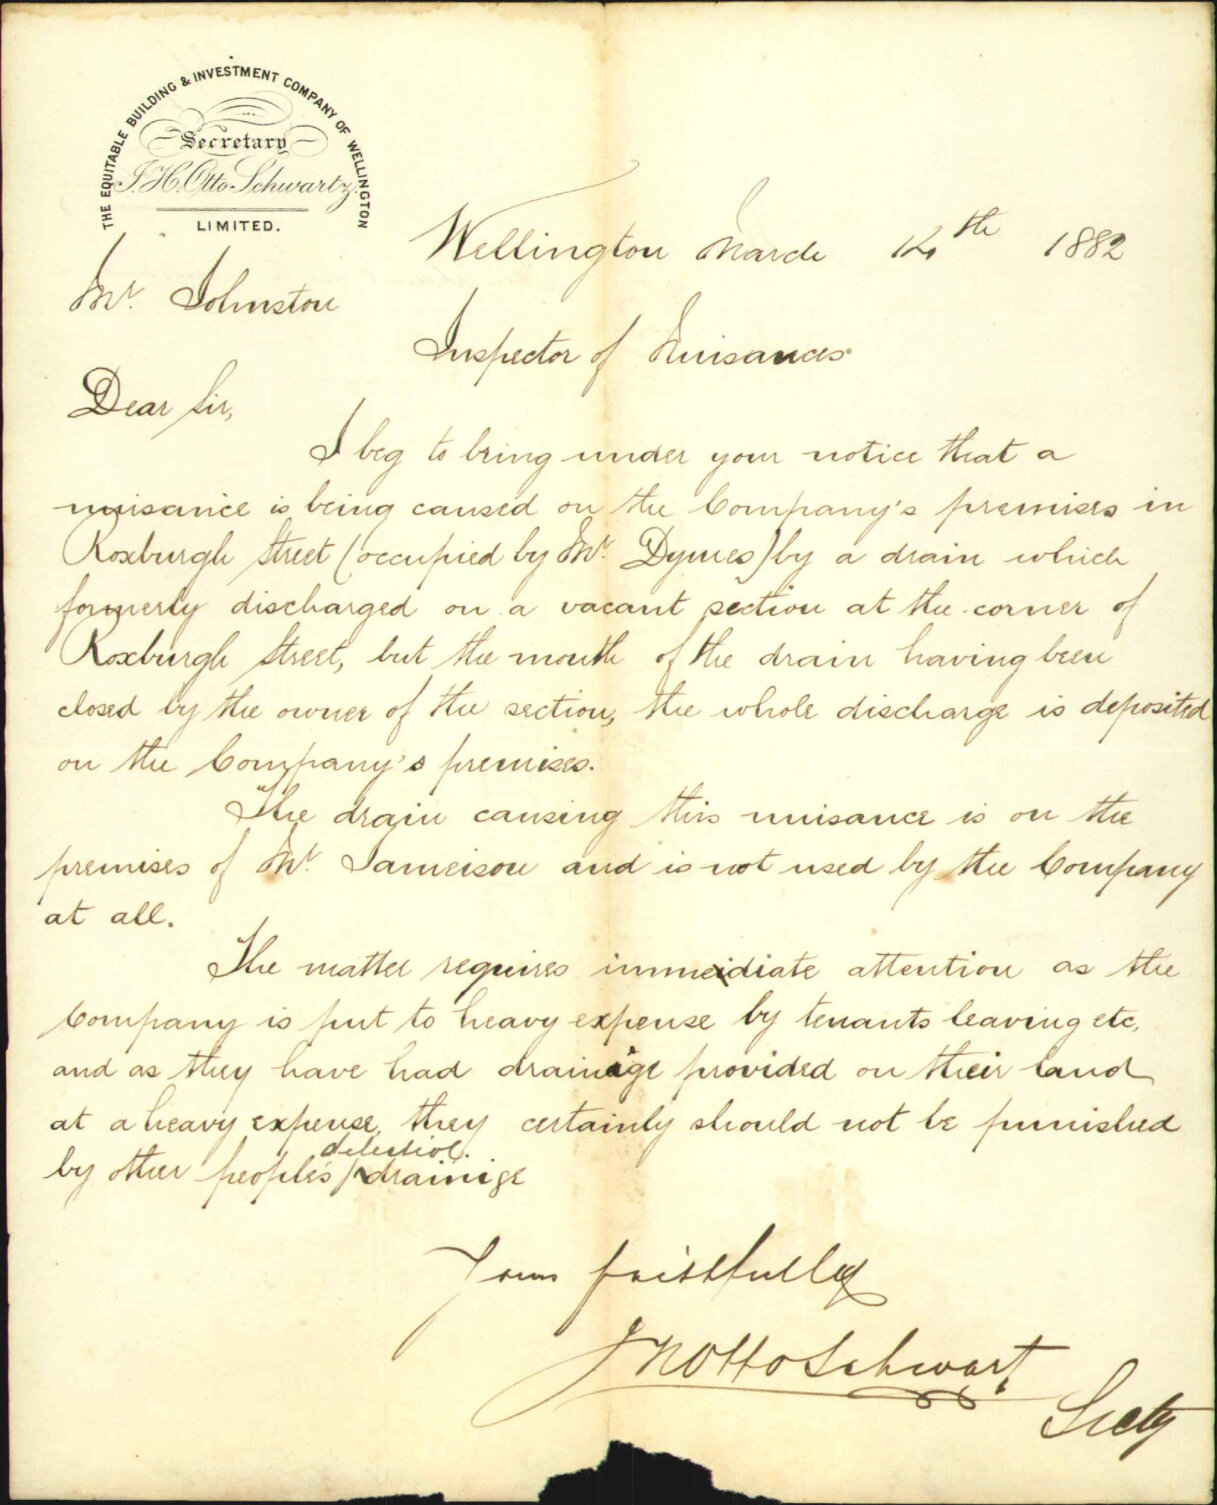 THE EQUITABLE BUILDING & INVESTMENT COMPANY OF WELLINGTON
Secretary
J. H. Otto Schwartz.
LIMITED.
Wellington March 14th 1882
Mr. Johnston
Inspector of Nuisances
Dear Sir,
I beg to bring under your notice that a
nuisance is being caused on the Company's premises in
Roxburgh Street (occupied by Mr. Dymes) by a drain which
formerly discharged on a vacant section at the corner of
Roxburgh Street, but the mouth of the drain having been
closed by the owner of the section, the whole discharge is deposited
on the Company's premises.
The drain causing this nuisance is on the
premises of Mr. Jameison and is not used by the Company
at all.
The matter requires immediate attention as the
Company is put to heavy expense by tenants leaving etc,
and as they have had drainage provided on their land
at a heavy expense, they certainly should not be punished
by other people's drainige
Yours faithfully
J H Otto Schwartz
Secty